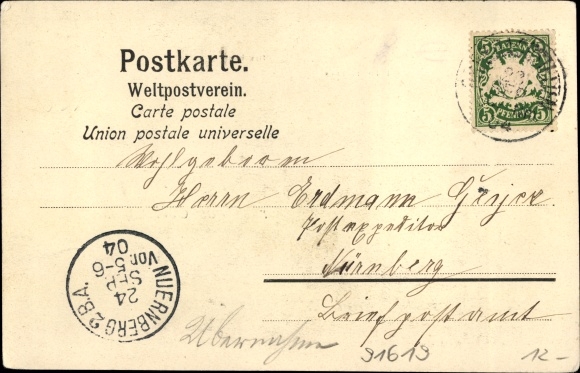 Postkarte.
Weltpostverein.
Carte postale
Union postale universelle
5 BAYERN 5
5 PFENNIG 5
23
04
Wohlgeboren
Herrn Erdmann Geyer
Postexpeditor
Nürnberg
Briefpostamt
NUERNBERG 2 B.A.
24
SEP
5-6
Vor.
04
Übernahme
91619
12-